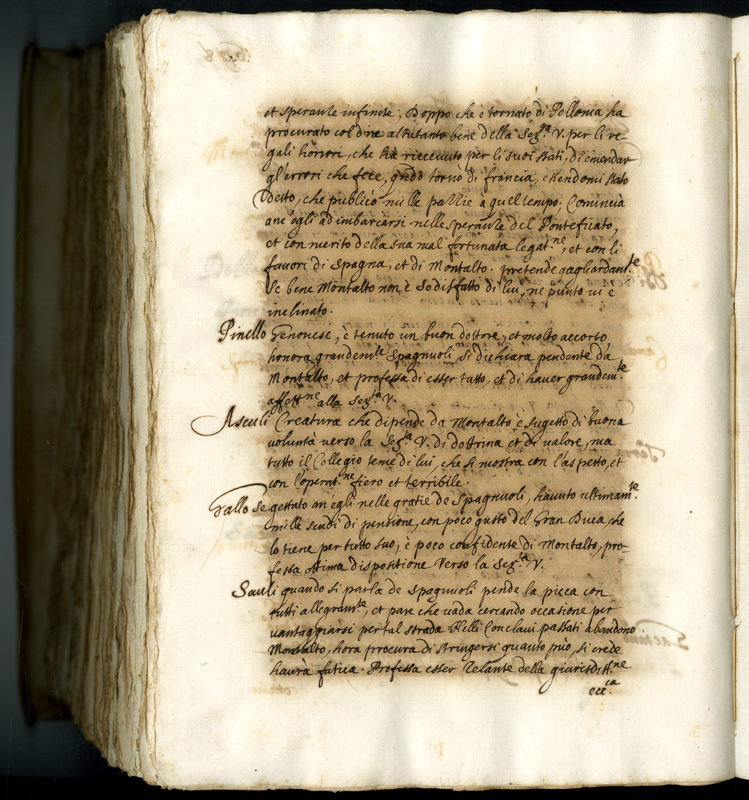 et speranze infinite; Doppo che è tornato di Pollonia ha
procurato col dire altretanto bene della Ser.tà V. per li re
gali honori, che hà riceevuto per li suoi stati, di emendar
gl'errori che fece, qndo tornò di francia, essendomi stato
detto, che publicò mille pazzie à quel tempo. Comincia
anc'egli ad imbarcarsi nelle speranze del Pontificato,
et con merito della sua mal fortunata legat.ne, et con li
favori di Spagna, et di Montalto. pretende gagliardam.te
se bene Montalto non è sodisfatto di lui, ne punto vi è
inclinato.
Pinello Genovese, è tenuto un buon dottore, et molto accorto,
honora grandem.te Spagnuoli, si dichiara pendente da
Montalto, et professa di esser tutto, et di haver grandem.te
affett.ne alla Ser.tà V.
Asculi Creatura che dipende da Montalto è sugetto di buona
voluntà verso la Ser.tà V. di dottrina et di valore, ma
tutto il Collegio teme di lui, che si mostra con l'aspetto, et
con l'operat.ne fiero et terribile.
Gallo se gettato an'egli nelle gratie de Spagnuoli, havuto ultimam.te
mille scudi di pensione, con poco gusto del Gran Duca, che
lo tiene per tutto suo; è poco confidente di Montalto, pro-
fessa ottima dispositione verso la Ser.tà V.
Sauli quando si parla de Spagnuoli pende la picca con
tutti allegram.te, et pare che vada cercando occasione per
vantaggiarsi per tal strada. Nelli Conclavi passati abandonò
Montalto, hora procura di stringersi quanto può, si crede
haurà fatica. Professa esser Zelante della giurisditt.ne
ecc.ca